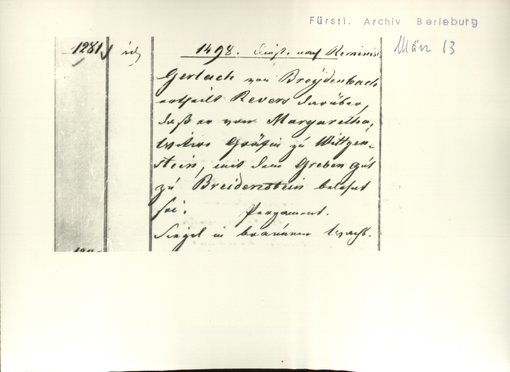 Fürstl. Archiv Berleburg
März 13
1281
1498. Dinst. nach Reminis.
Gerlach von Breydenbach
ertheilt Revers darüber,
daß er von Margaretha,
Witwe Gräfin zu Wittgen-
stein, mit dem Greben gut
zu Breidenstein belehnt
sei. Pergament.
Siegel in braunem Wachs.